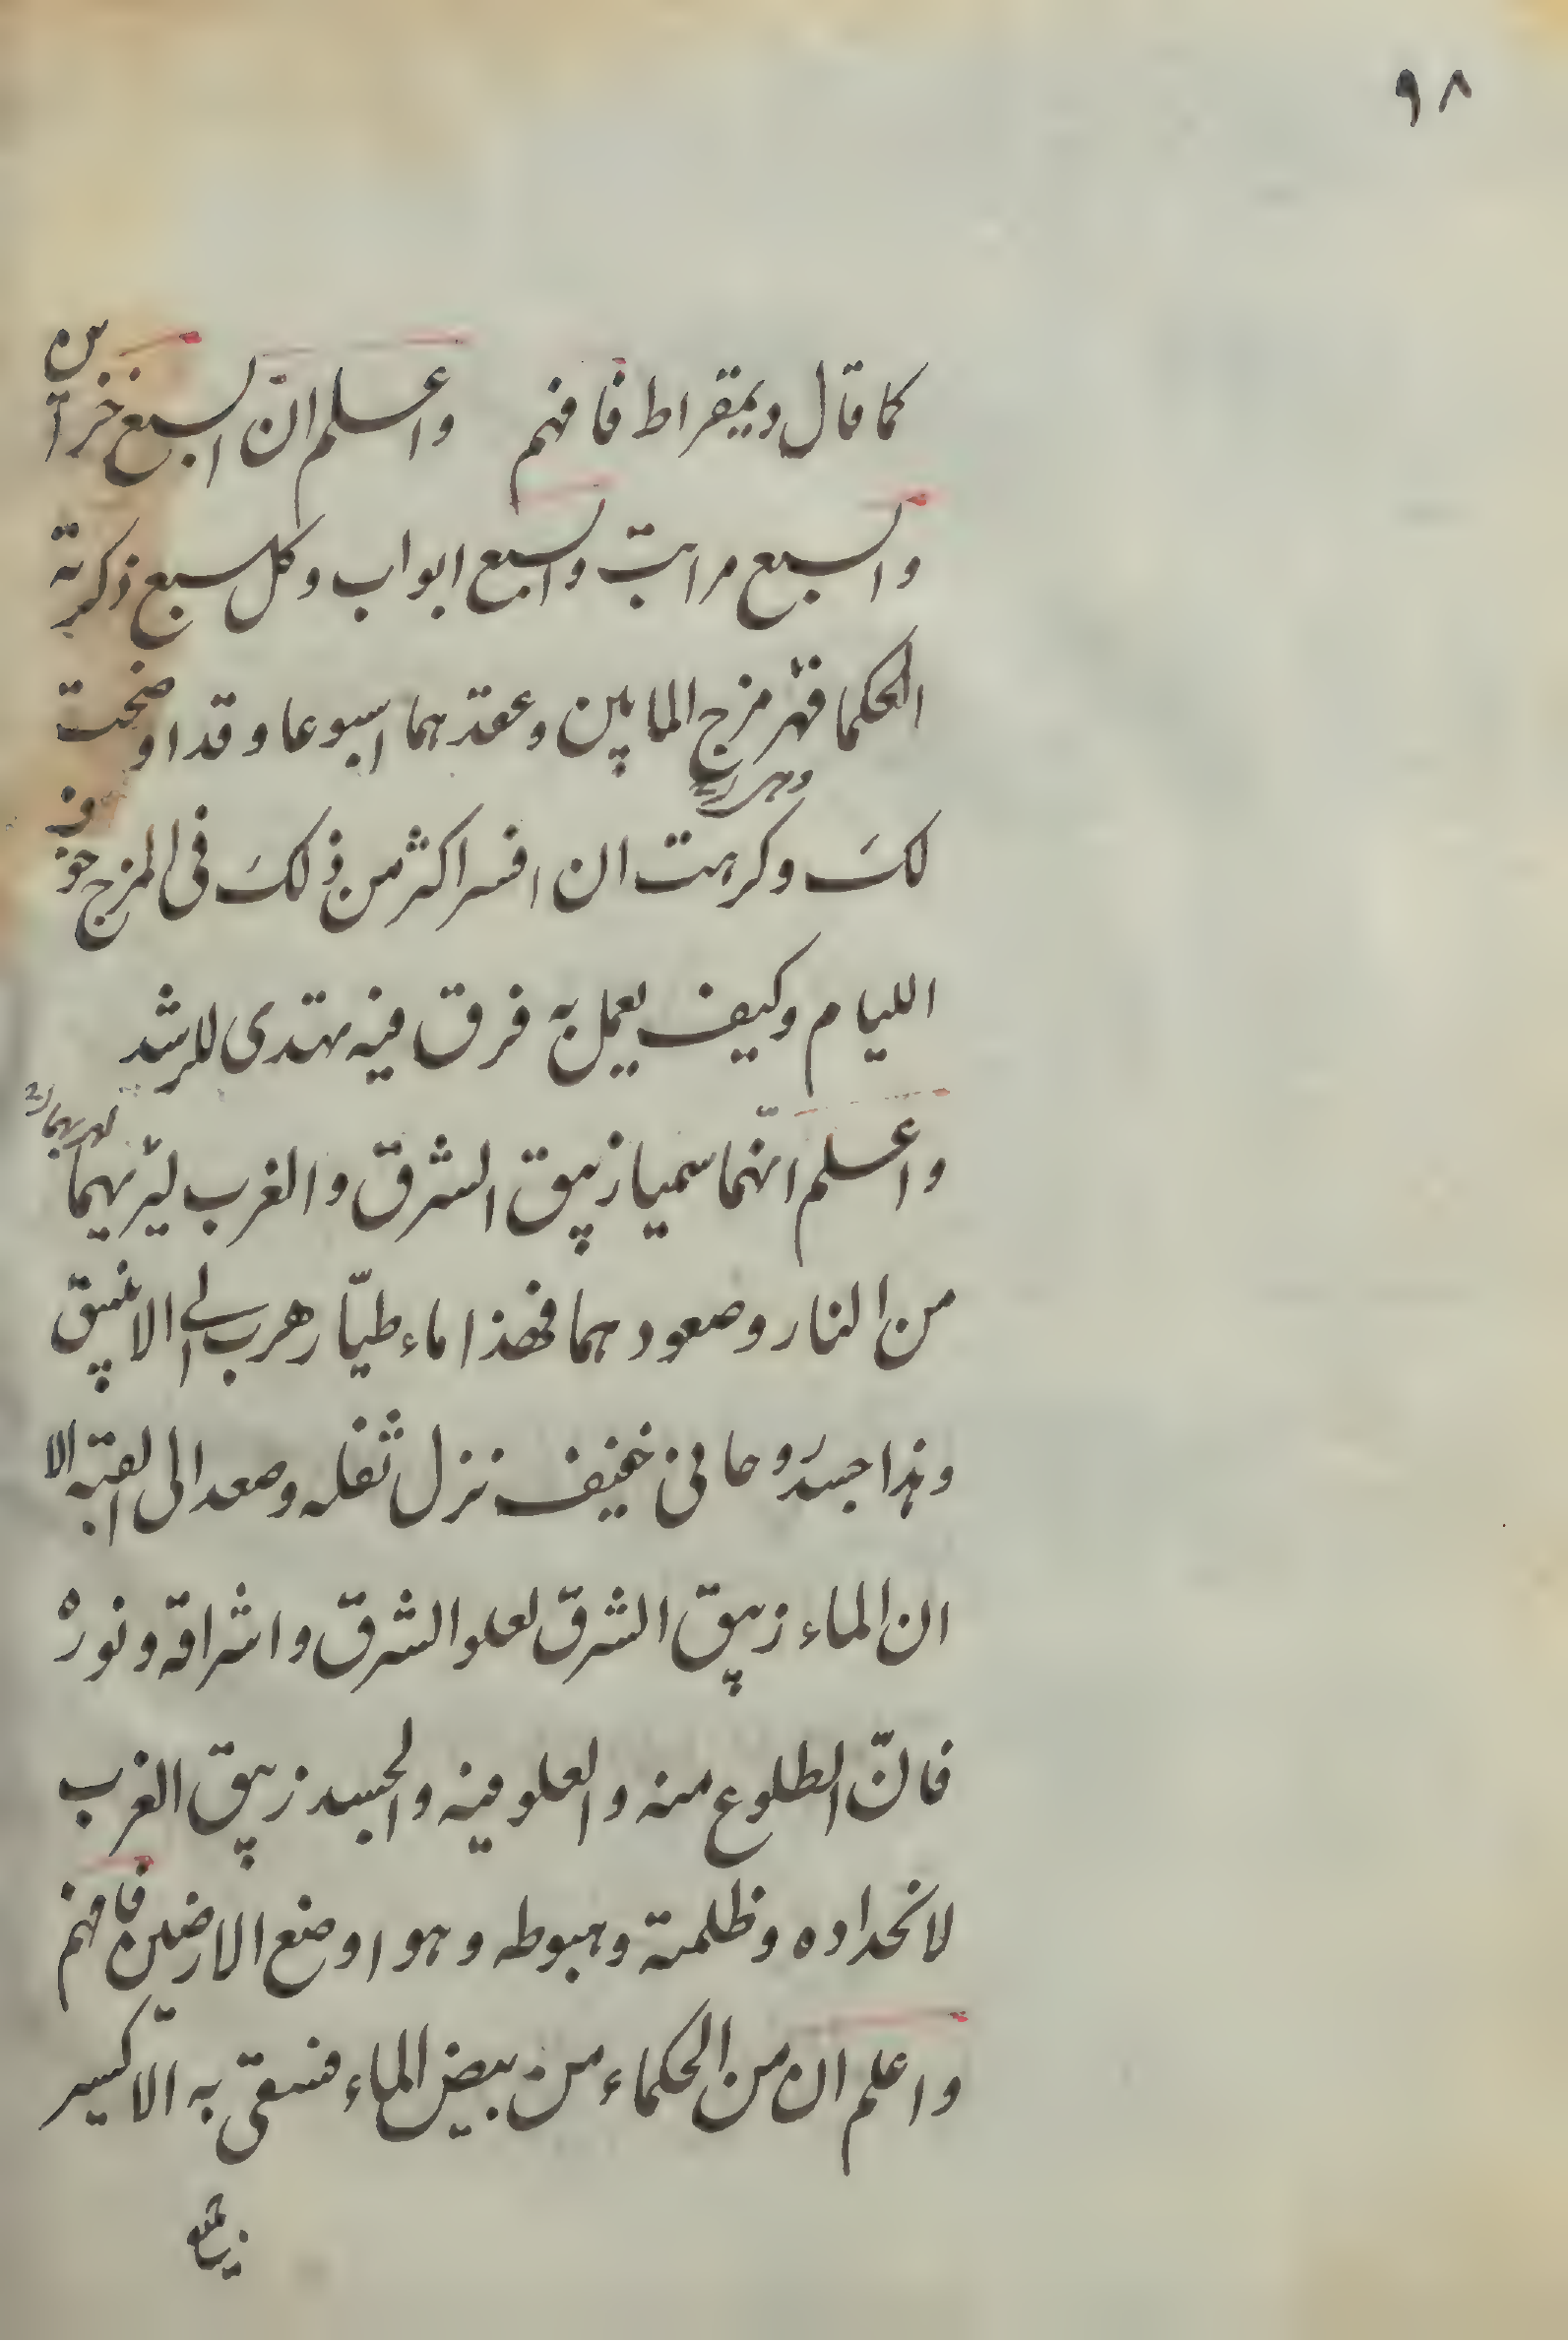 ٩٨
كما قال ديمقراط فافهم واعلم انّ السبع خزآين
والسبع مراتب والسبع ابواب وكل سبع ذكرته
الحكما فهو مزج المايين وعقدهما اسبوعا وقد اوضحت
لك وكرهت ان افسر اكثر من ذلك فى المزج خوف
الليام وكيف يعمل به فرق فيه تهتدى للرشد
واعلم انّهما سميا زيبق الشرق والغرب
من النار وصعودهما فهذا ماء طيّار هرب الى الانبيق
وهذا جسد روحانى خفيف نزل ثفله وصعد الى القبة الا
ان الماء زيبق الشرق لعلو الشرق واشراقه ونوره
فانّ الطلوع منه والعلو فيه والجسد زيبق الغرب
لانحداره وظلمته وهبوطه وهو اوضع الارضين فافهم
واعلم ان من الحكماء من بيض الماء فسقى به الاكسير